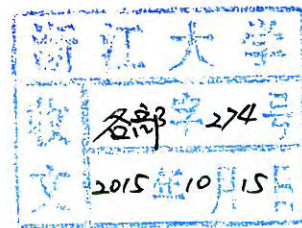 浙江大学
收文 各部字274号
2015年10月15日